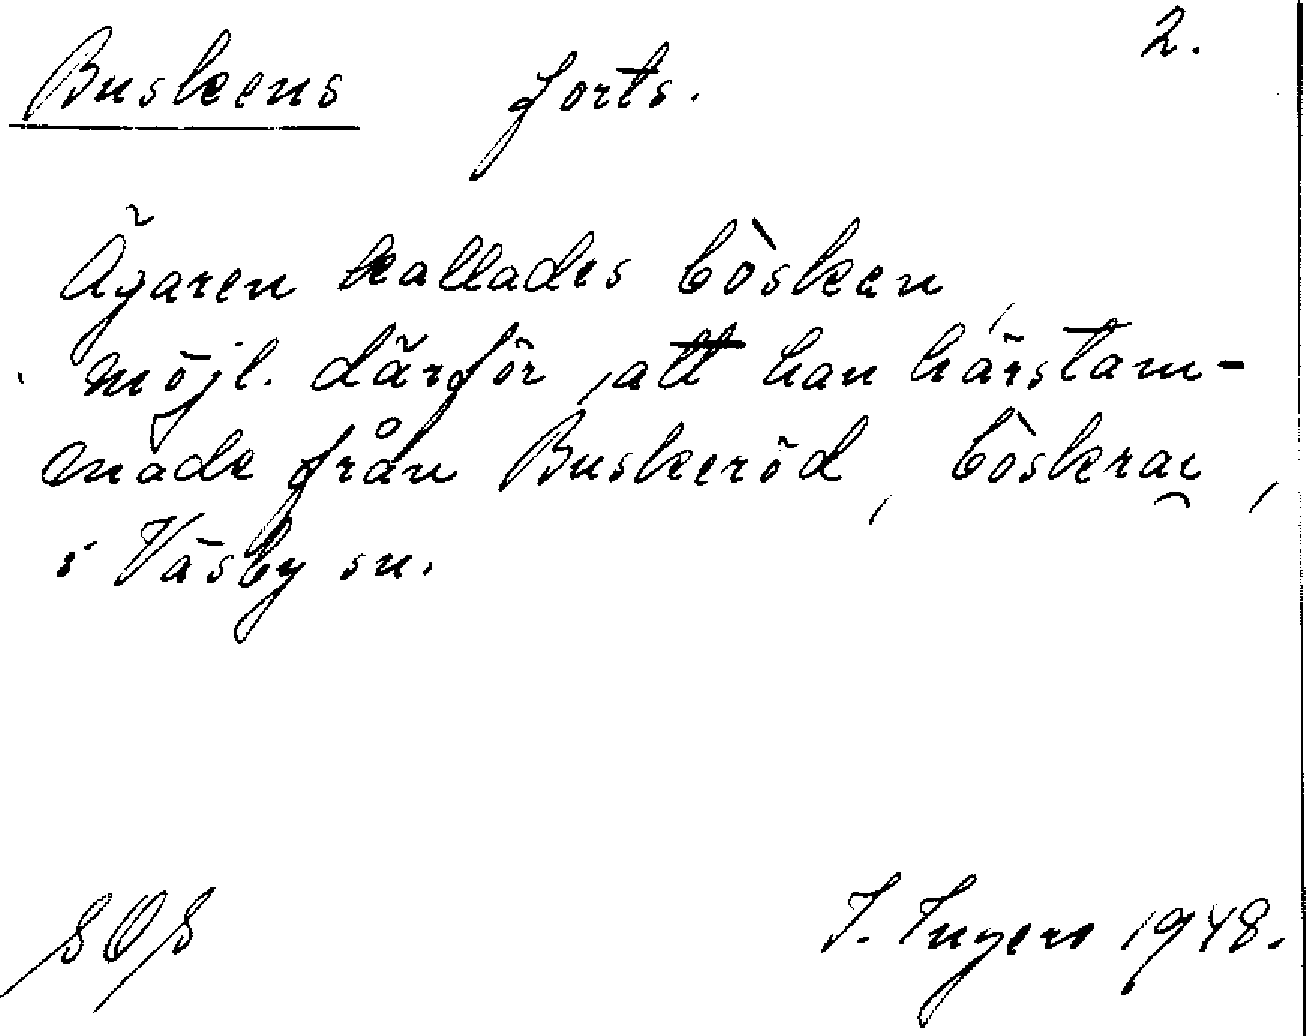 Buskens forts. 2.
Ägaren kallades bòsken,
möjl. därför, att han härstam-
made från Buskeröd, bòskra̯,
i Väsby sn.
SOS I. Ingers 1948.